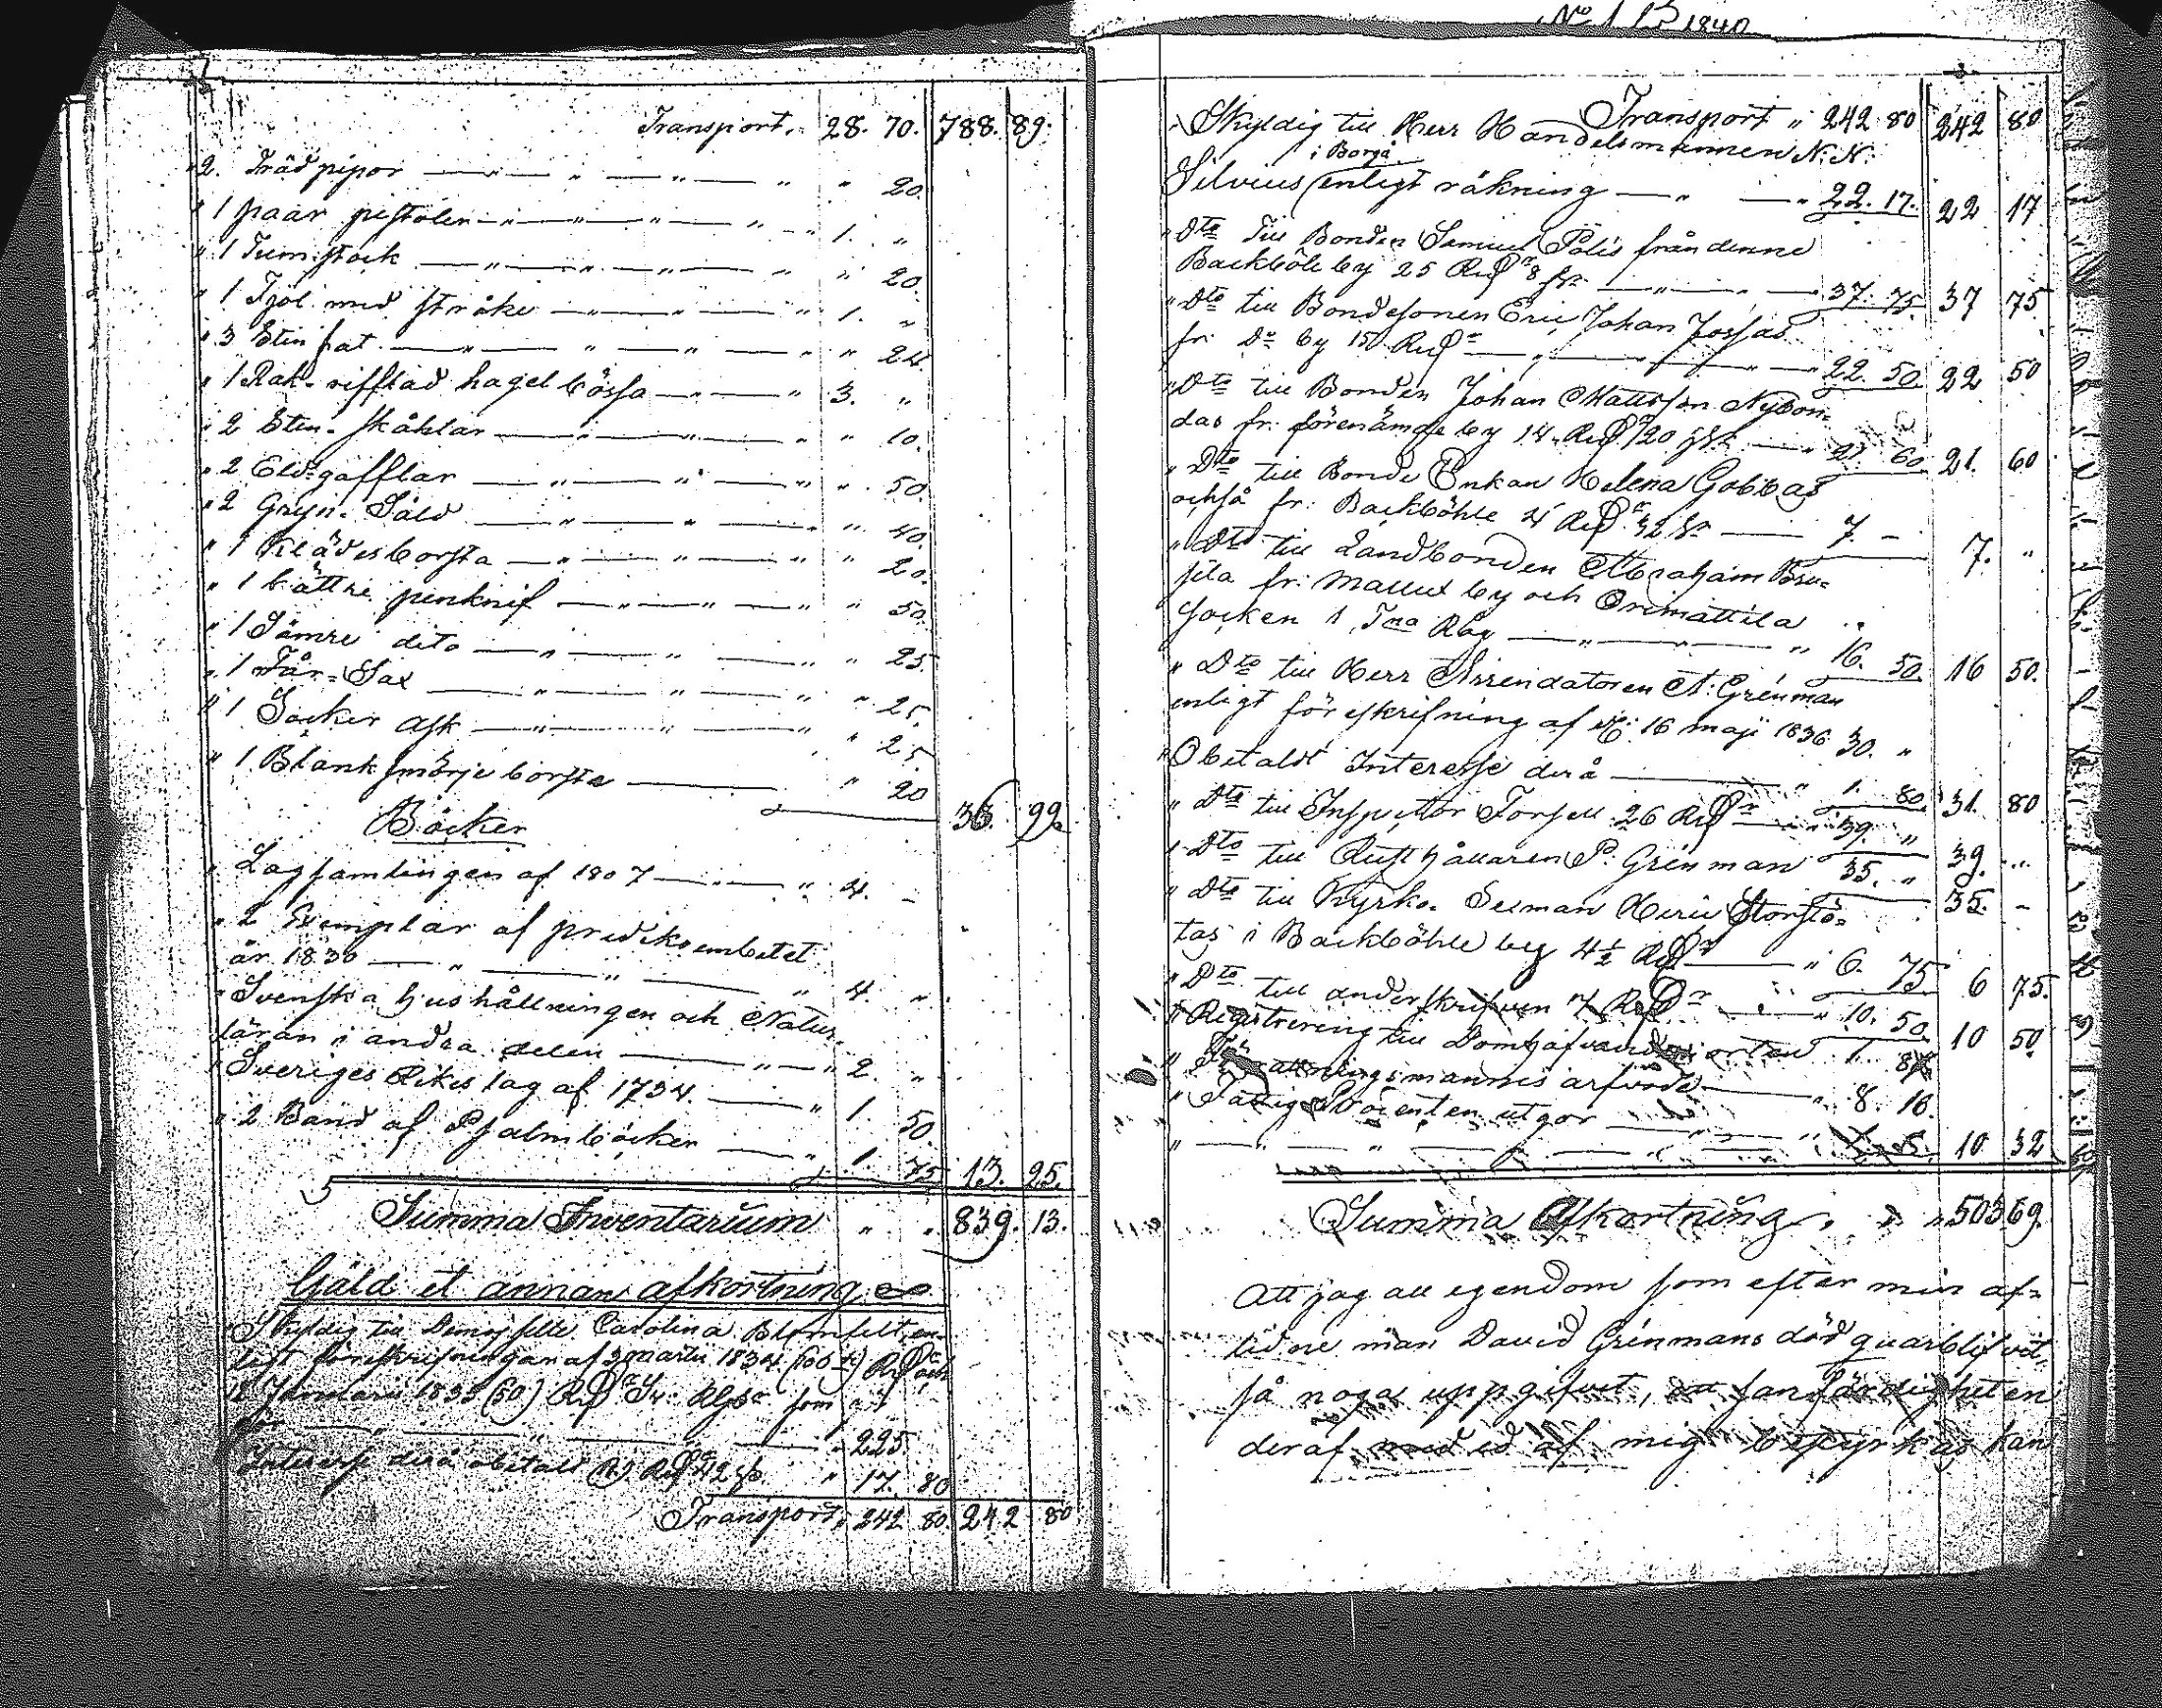 Transport. 28. 70. 788. 89.
" 2. Trädpipor — " — " — " " 20.
" 1 paar pistoler — " — " — " 1. "
" 1 Tumstock — " — " — " " 20.
" 1 Fjol med stråke — " — " — " 1. "
" 3 Sten fat — " — " — " " 24
" 1 Rak- rifflad hagelbössa — " — " 3. "
" 2 Sten- skåhlar — " — " — " " 10.
" 2 Eld-gafflar — " — " — " " 50
" 2 Gryn- Såld — " — " — " " 40.
" 1 Klädesborsta — " — " — " " 20.
" 1 bättre penknif — " — " — " " 50.
" 1 Sämre dito — " — " — " " 25.
" 1 Får-Sax — " — " — " " 25.
" 1 Socker ask — " — " — " " 25
" 1 Blanksmörje borsta — " 20 36. 99.
Böcker
" Lagsamlingen af 1807 — " — " 4. -
" 2 Exemplar af prediko embetet
år 1830 — " — " — " 4. "
" Svenska hushållningen och Natur-
läran i andra delen — " — " 2. "
" Sveriges Rikes lag af 1734. — " 1. 50.
" 2 Band af Psalmböcker — " 1. 75 13. 25.
Summa Inventarium " " 839. 13.
Gäld et annan afkortning
Skyldig till Demoiselle Carolina Blomfelt, en-
ligt förskrifningar af 3 martii 1834 (100) och
12 Januarii 1835 (50) som gör
— " — " — " 225
Interesse derå obetalt " 17. 80
Transport, 242 80. 242 80
No 1 1840
Transport " 242 80 242 80
Skyldig till Herr Handelsmannen N: N:
i Borgå
Silvius enligt räkning — " — " 22. 17. 22 17
" Dto till Bonden Samuel Pålis från denne
Backböle by 25 — " — " — 37. 75. 37 75
" Dto till Bondesonen Eric Johan Jossas
fr: Do by 15 — " — " — 22. 50. 22 50
" Dto till Bonden Johan Mattsson Nybon-
das fr: förenämde by 14 — " 21. 60 21. 60
" Dto till Bonde Enkan Helena Gobbas
också fr: Backböhle 4 — 7. - 7. "
" Dto till Landbonden Abraham
fr: by och Orimattila
Socken 1 Tna Råg — " — " 16. 50. 16 50.
" Dto till Herr Arrendatoren A: Grenman
enligt förskrifning af 16 maji 1836 30. "
" Obetaldt Interesse derå — " 1. 80. 31. 80
" Dto till Inspector Forsell 26 — " 39. " 39. "
" Dto till Rusthållaren P: Grenman 35. " 35. -
" Dto till Kyrko-
tas i Backböhle by 4½ — " 6. 75 6 75.
" Dto till underskrifven 7 — " 10. 50. 10 50
" Registrering till 1.
" arfvode — " 8. 16.
" Fattig Procenten utgör — " —
" — " — " — " — " 10 32
Summa Afkortning " " " 503 69
Att jag all egendom som efter min af-
lidne man David Grenmans död quarblifvit,
så noga uppgifvet, att sanfärdigheten
deraf med ed af mig bestyrkas kan